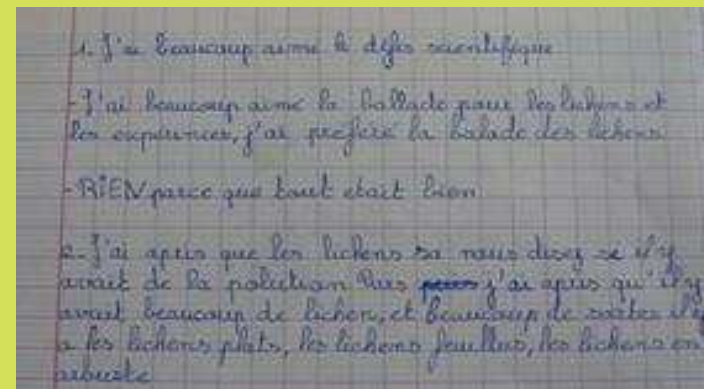 1. J'ai beaucoup aimé le défis scientifique
- J'ai beaucoup aimé la ballade pour les lichens et
les expériences, j'ai préféré la balade des lichens
- RiEN parce que tout était bien
2. J'ai apris que les lichens sa nous disez se il y
avait de la polution Puis j'ai apris qu'il y
avait beaucoup de lichen, et beaucoup de sortes il y
a les lichens plats, les lichens feuillus, les lichens en
arbuste